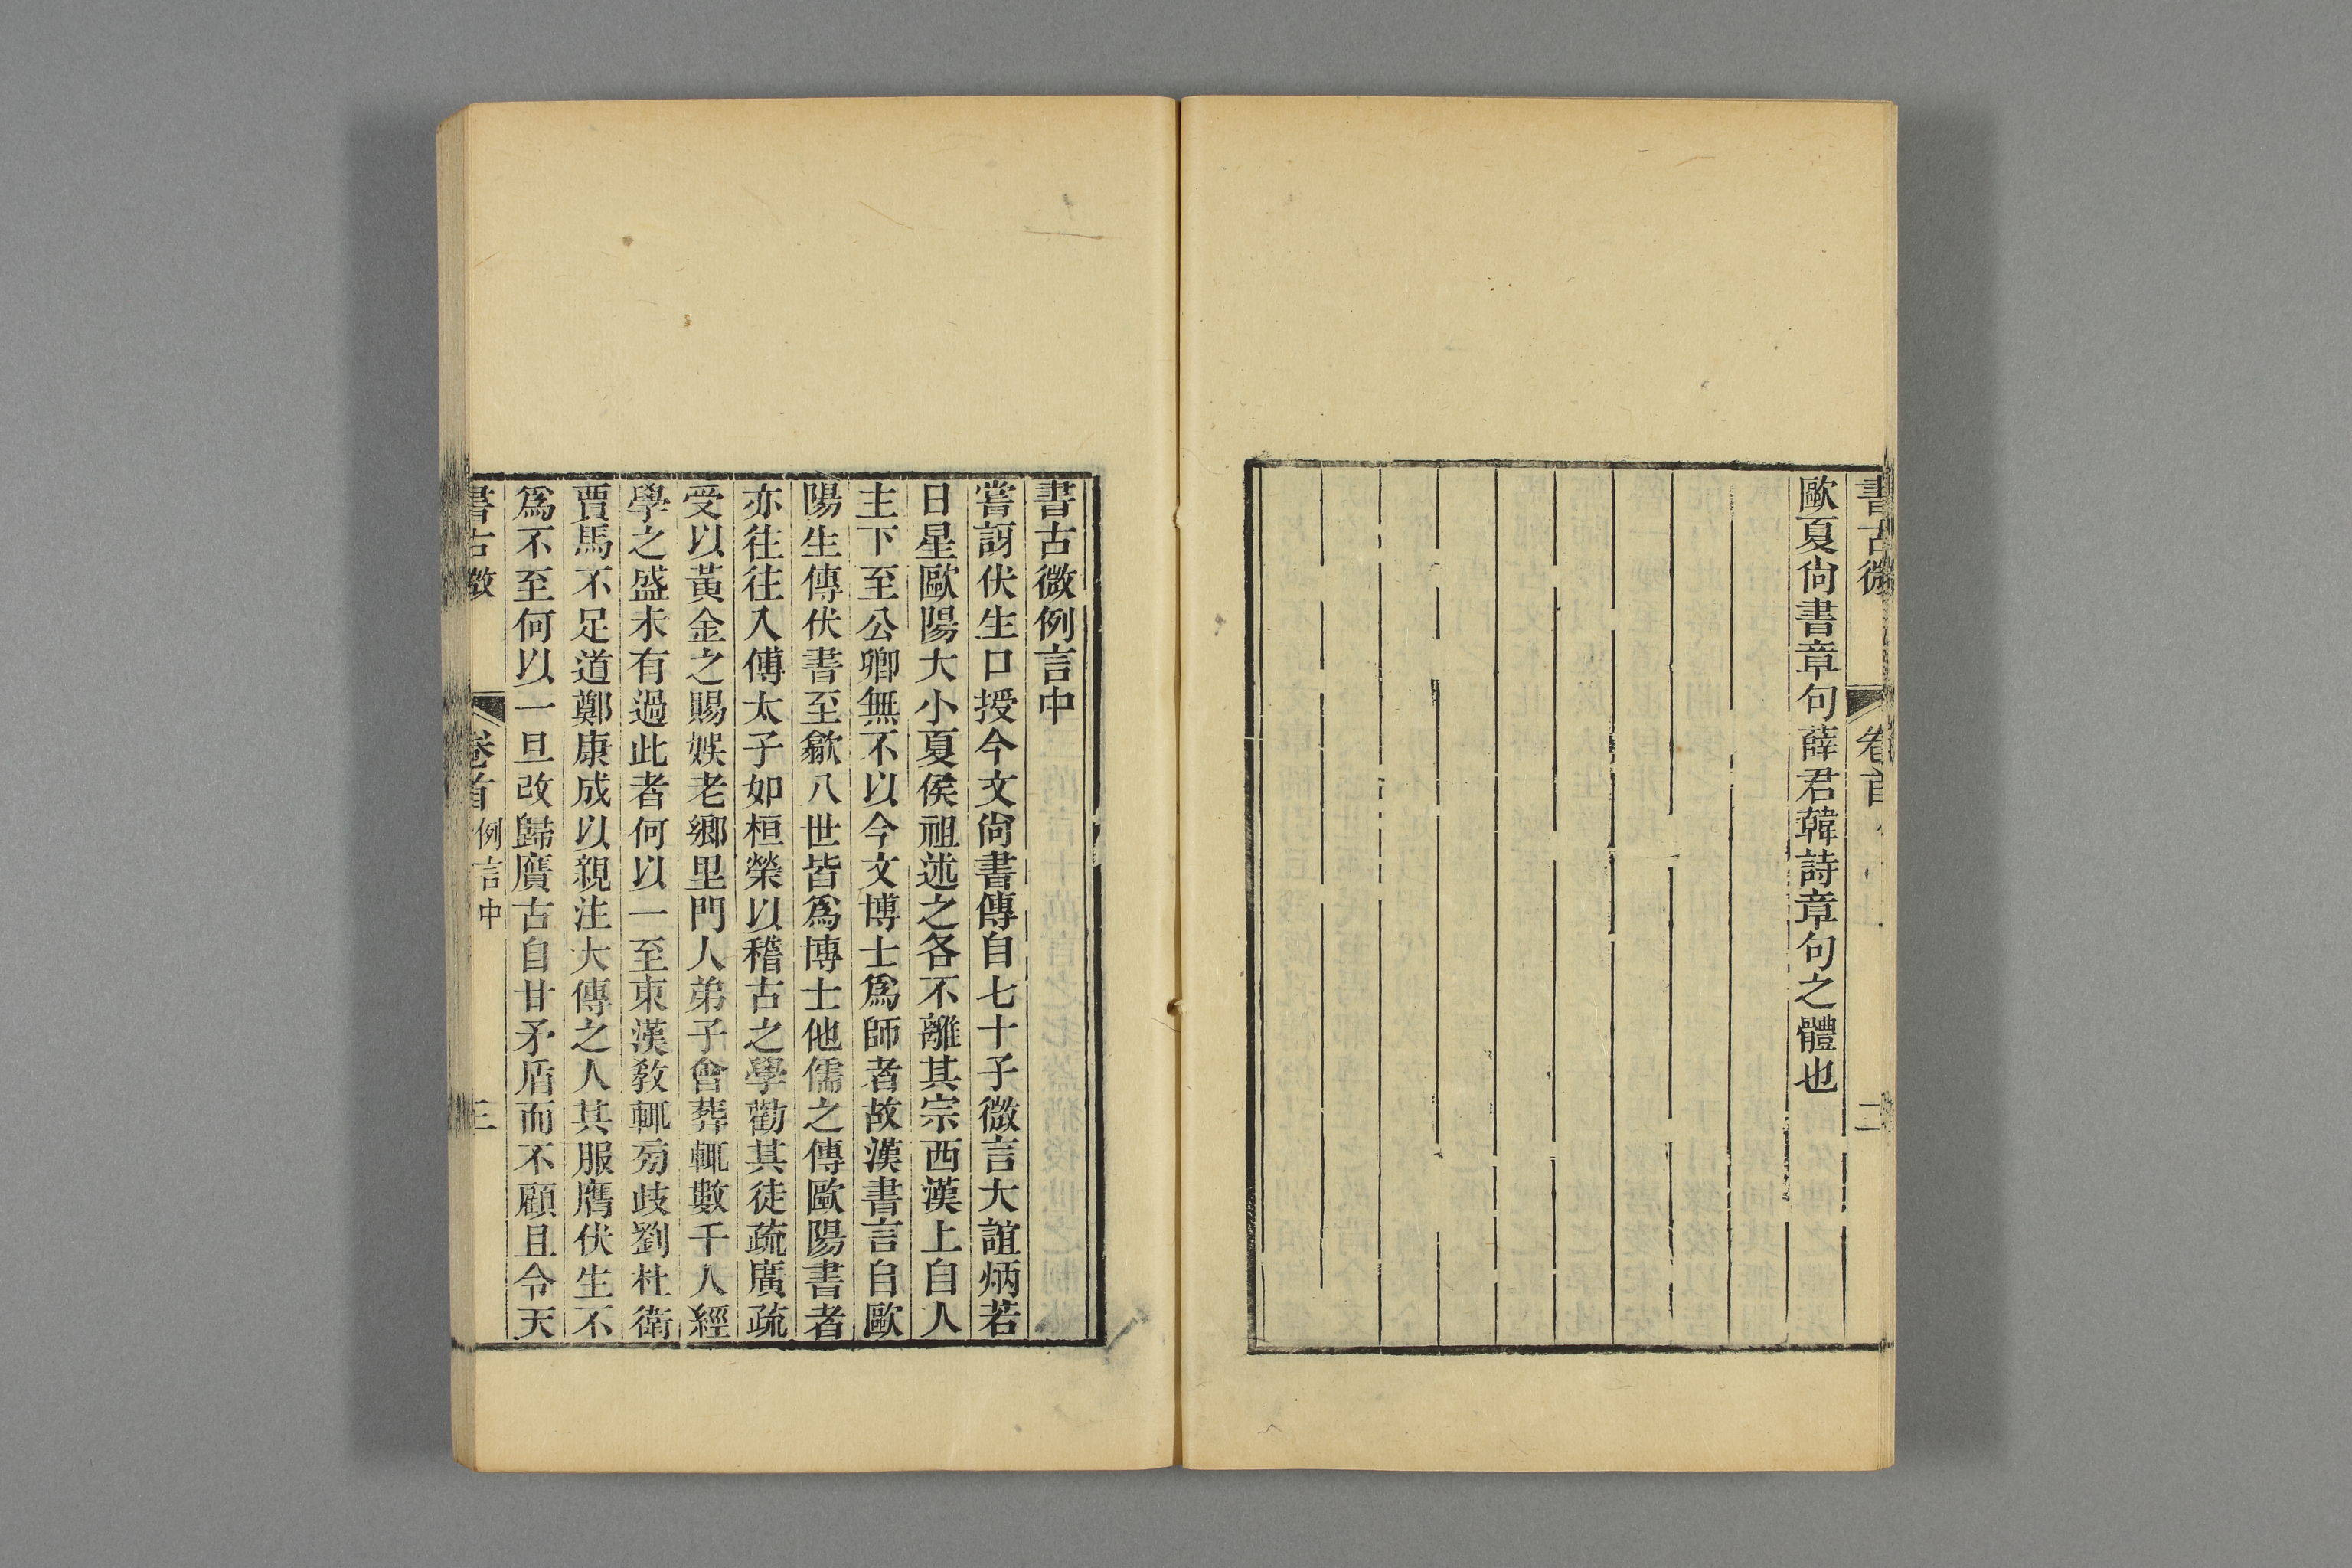 書古微 卷首 二
歐夏尙書章句薛君韓詩章句之體也
書古微例言中
嘗訝伏生口授今文尙書傳自七十子微言大誼炳若
日星歐陽大小夏侯祖述之各不離其宗西漢上自人
主下至公卿無不以今文博士爲師者故漢書言自歐
陽生傳伏書至歙八世皆爲博士他儒之傳歐陽書者
亦往往入傅太子如桓榮以稽古之學勸其徒疏廣疏
受以黃金之賜娛老鄉里門人弟子會葬輒數千人經
學之盛未有過此者何以一至東漢敎輒芻歧劉杜衞
賈馬不足道鄭康成以親注大傳之人其服膺伏生不
爲不至何以一旦改歸贗古自甘矛盾而不顧且令天
書古微 卷首 例言中 三